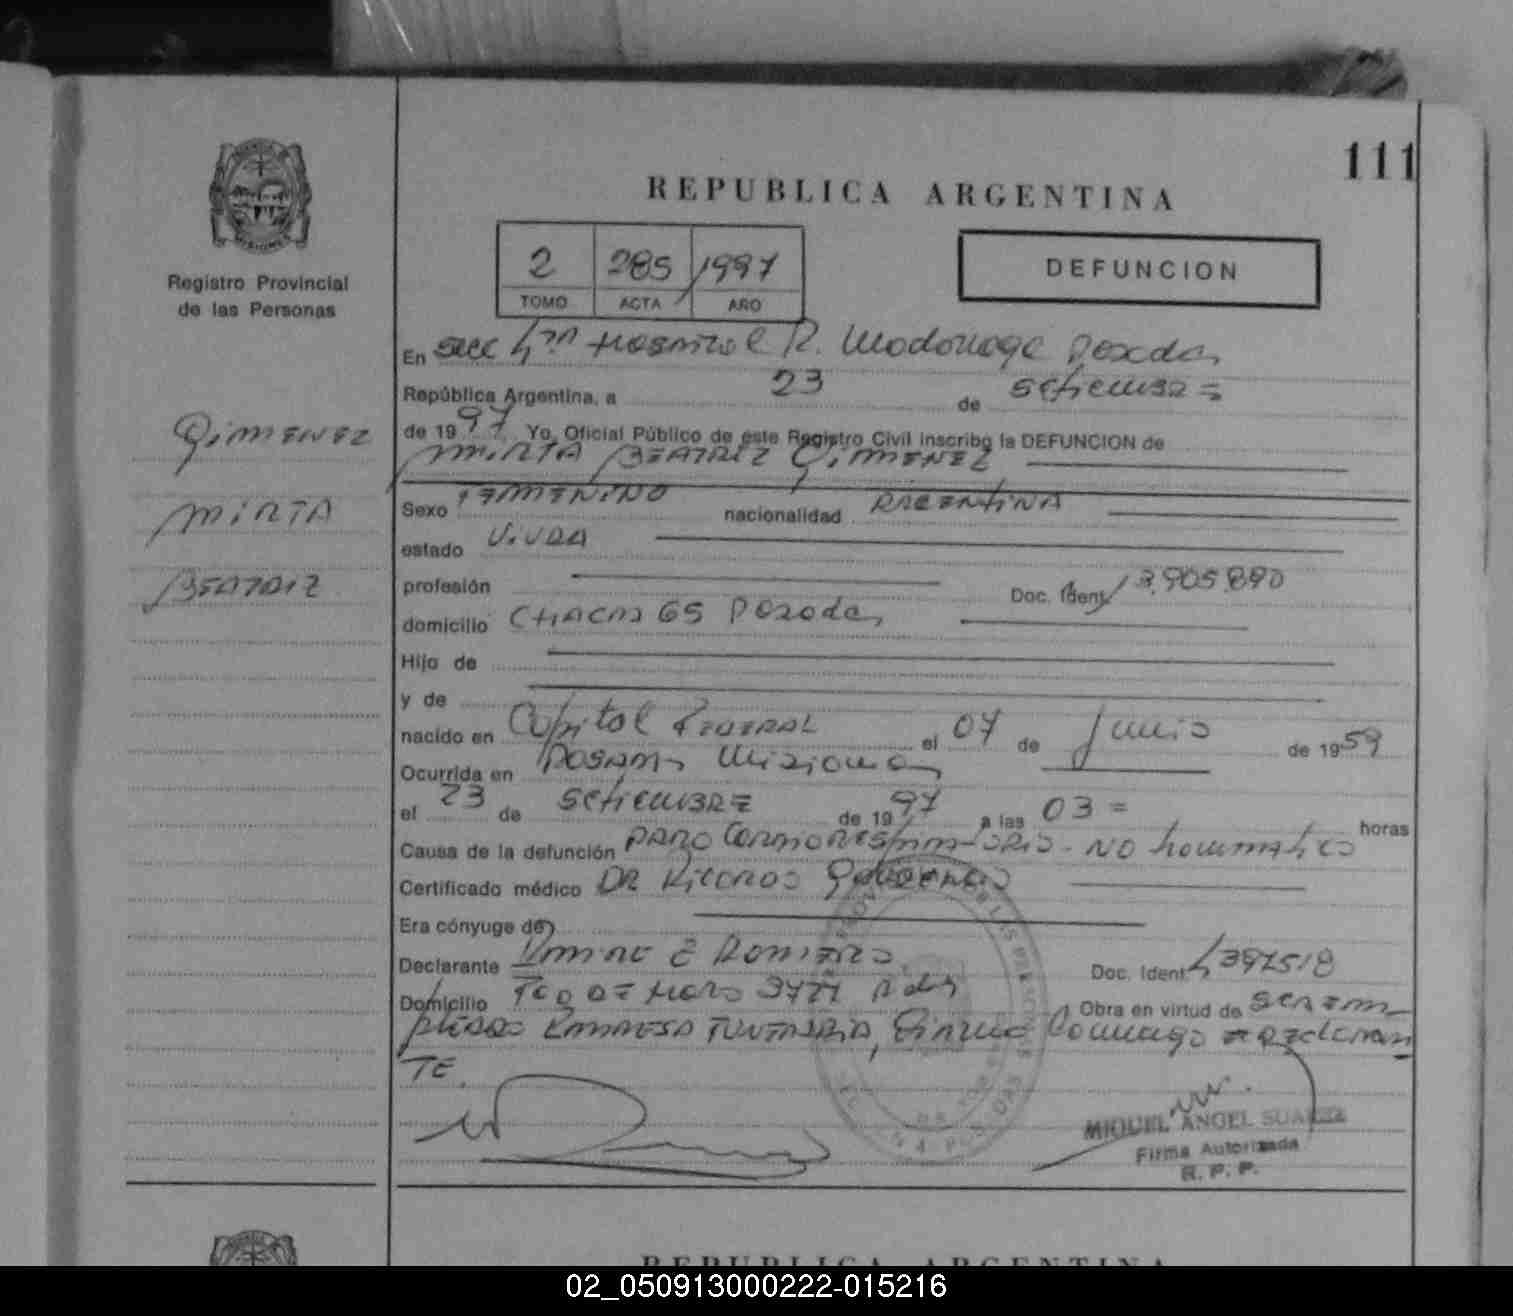 111
REPUBLICA ARGENTINA
Registro Provincial
de las Personas
2 285 / 1997
TOMO ACTA AÑO
DEFUNCION
En Secc 4ta Hospital R. Madariaga Posadas
República Argentina, a 23 de Setiembre =
de 19 97 Yo, Oficial Público de este Registro Civil inscribo la DEFUNCION de
MIRTA BEATRIZ GIMENEZ
GIMENEZ
MIRTA
BEATRIZ
Sexo FEMENINO nacionalidad ARGENTINA
estado Viuda
profesión Doc. Ident. 13.905.890
domicilio CHACRA 65 Posadas
Hijo de
y de
nacido en Capital FEDERAL el 07 de Junio de 19 59
Ocurrida en Posadas Misiones
el 23 de Setiembre de 19 97 a las 03 = horas
Causa de la defunción PARO CARDIORESPIRATORIO - NO traumatico
Certificado médico DR Ricardo
Era cónyuge de
Declarante E Romero Doc. Ident.
Domicilio Pdas Obra en virtud de SER EM
PLEADO EMPRESA FUNERARIA, Firma Conmigo EL DECLARAN
TE.
MIGUEL ANGEL SUAREZ
Firma Autorizada
R. P. P.
REPUBLICA ARGENTINA
02_050913000222-015216